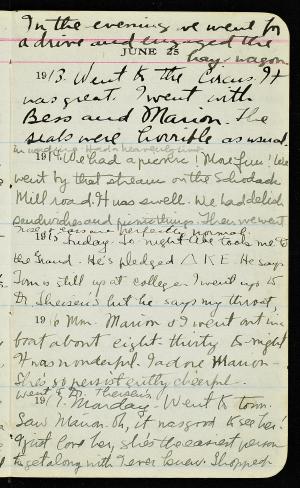 In the evening we went for
a drive and enjoyed the
JUNE 25 hay-wagon
1913. Went to the Circus. It
was great. I went with
Bess and Marion. The
seats were horrible as usual.
in working. Had a heavenly time.
1914 We had a picnic! Most fun! We
went by that stream on the Schodack
Mill road. It was swell. We had delish
sandwiches and picnic things. Then we went
nose & ears are perfectly normal.
1915 Friday. To-night took me to
the Grand. He's pledged Δ K E. He says
Tom is still up at college. I went up to
Dr. but he says my throat,
1916 Mon. Marion & I went out in
boat about eight-thirty to-night
It was wonderful. I adore Marion -
She's so persistently cheerful -
Went to Dr.
191 . Monday - Went to town.
Saw Marion. Oh, it was good to see her!
I just love her, she's the easiest person
to get along with I ever knew. Shopped